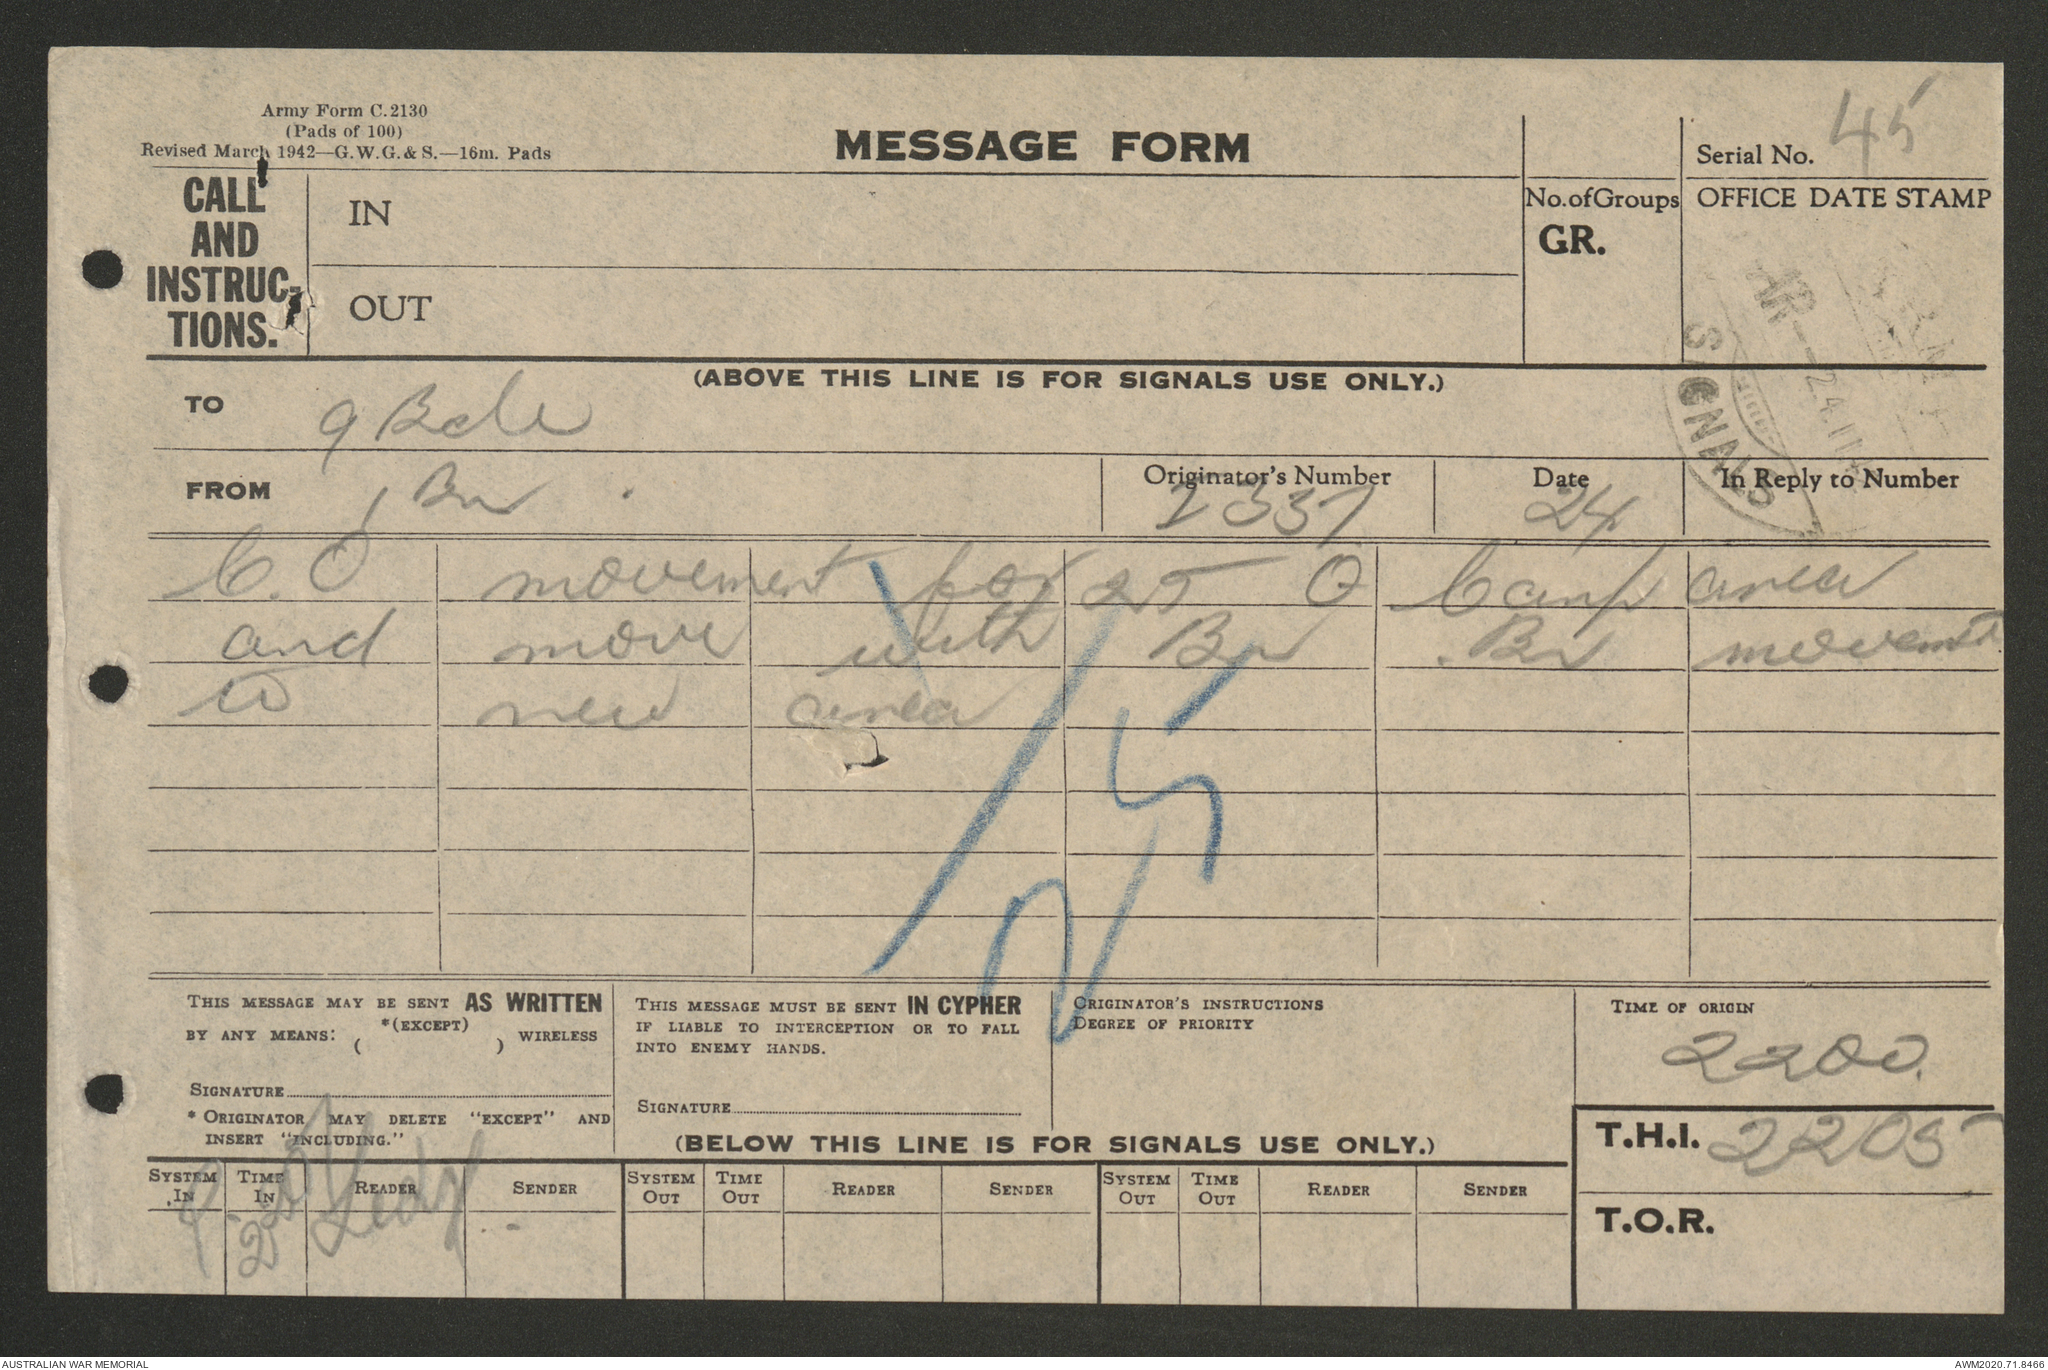 Army Form C.2130
(Pads of 100)
Revised March 1942—G.W.G. & S.—16m. Pads
MESSAGE FORM
Serial No. 45
CALL AND INSTRUC-TIONS.
IN
OUT
No. of Groups
GR.
OFFICE DATE STAMP
SIGNALS
(ABOVE THIS LINE IS FOR SIGNALS USE ONLY.)
TO 9 Bde
FROM 1 Bn
Originator's Number 2337
Date 24
In Reply to Number
C.O movement for 25 O Camp area
and move with Bn . Bn movement
to new area
25
THIS MESSAGE MAY BE SENT AS WRITTEN
BY ANY MEANS: *(EXCEPT) ( ) WIRELESS
SIGNATURE
* ORIGINATOR MAY DELETE "EXCEPT" AND
INSERT "INCLUDING."
THIS MESSAGE MUST BE SENT IN CYPHER
IF LIABLE TO INTERCEPTION OR TO FALL
INTO ENEMY HANDS.
SIGNATURE
ORIGINATOR'S INSTRUCTIONS
DEGREE OF PRIORITY
TIME OF ORIGIN
2200.
(BELOW THIS LINE IS FOR SIGNALS USE ONLY.)
T.H.I. 2205
T.O.R.
SYSTEM IN TIME IN READER SENDER SYSTEM OUT TIME OUT READER SENDER SYSTEM OUT TIME OUT READER SENDER
AUSTRALIAN WAR MEMORIAL
AWM2020.71.8466